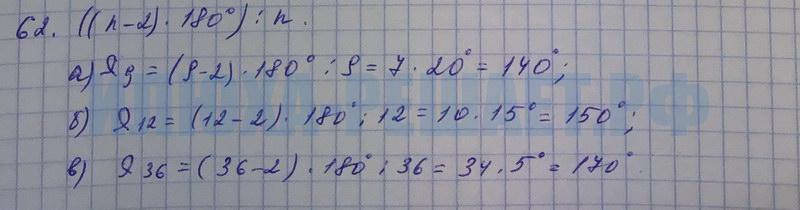 62. ((n-2) · 180°) : n.
а) α₉ = (9-2) · 180° : 9 = 7 · 20° = 140°;
б) α₁₂ = (12-2) · 180° : 12 = 10 · 15° = 150°;
в) α₃₆ = (36-2) · 180° : 36 = 34 · 5° = 170°.